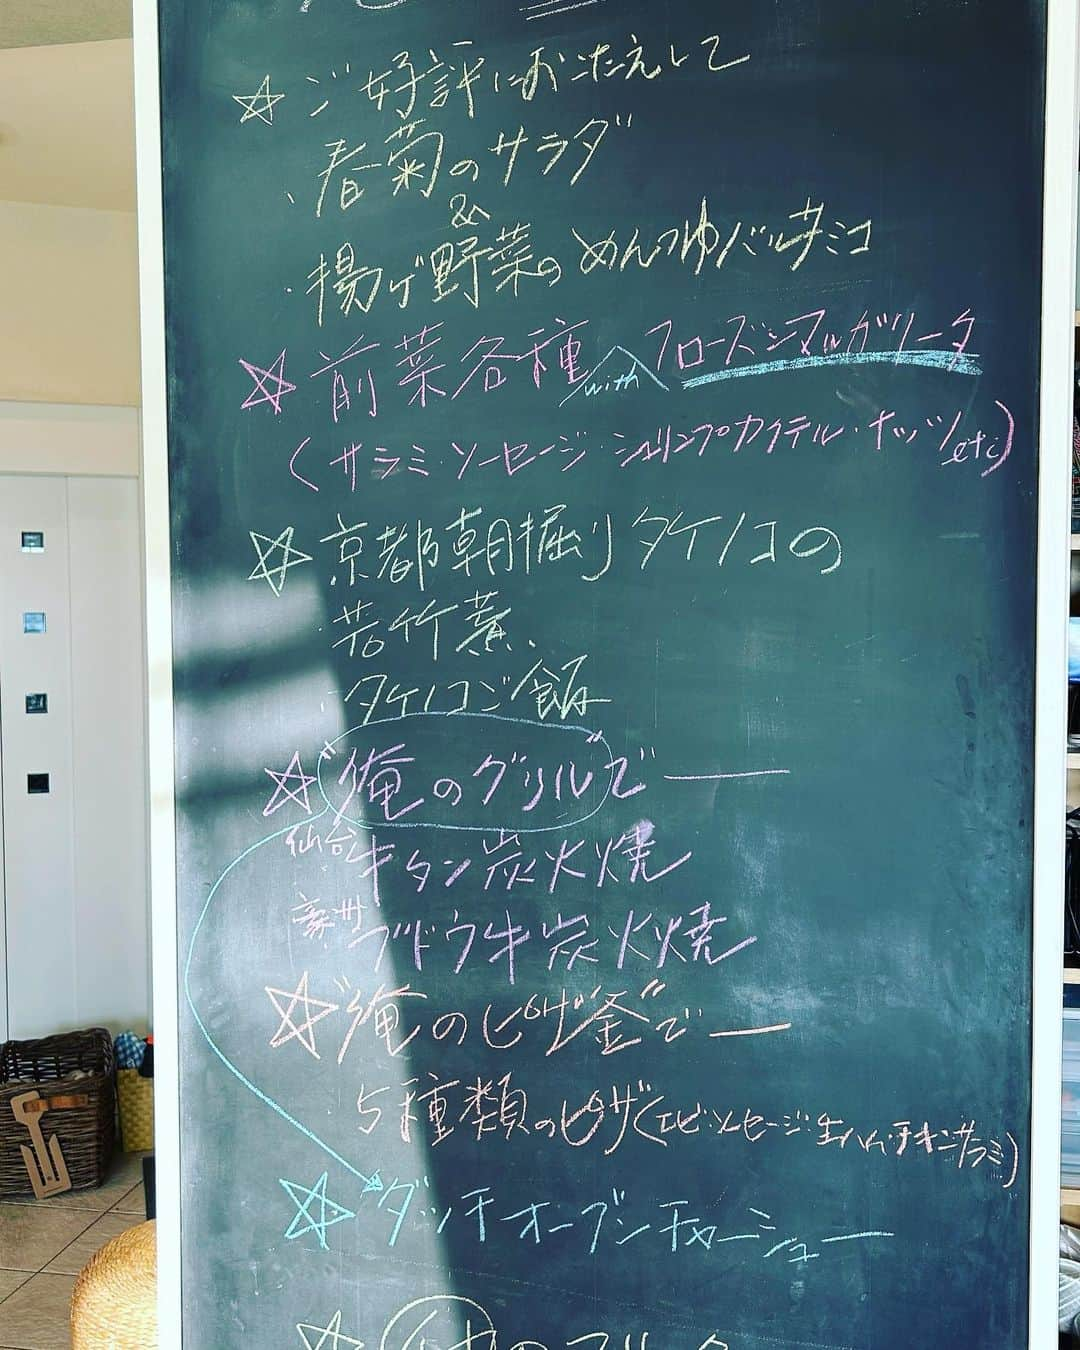 ☆ ご好評におこたえして
・春菊のサラダ
&
・揚げ野菜のめんつゆバルサミコ
☆ 前菜各種 with フローズンマルガリータ
(サラミ・ソーセージ・シュリンプカクテル・ナッツ etc)
☆ 京都朝掘りタケノコの
・若竹煮、
・タケノコご飯
☆ "俺のグリル"で―
仙台牛タン炭火焼
豪州ブドウ牛炭火焼
☆ "俺のピザ釜"で―
・5種類のピザ(エビ・ソーセージ・生ハム・チキン・サラミ)
☆ ダッチオーブンチャーシュー―